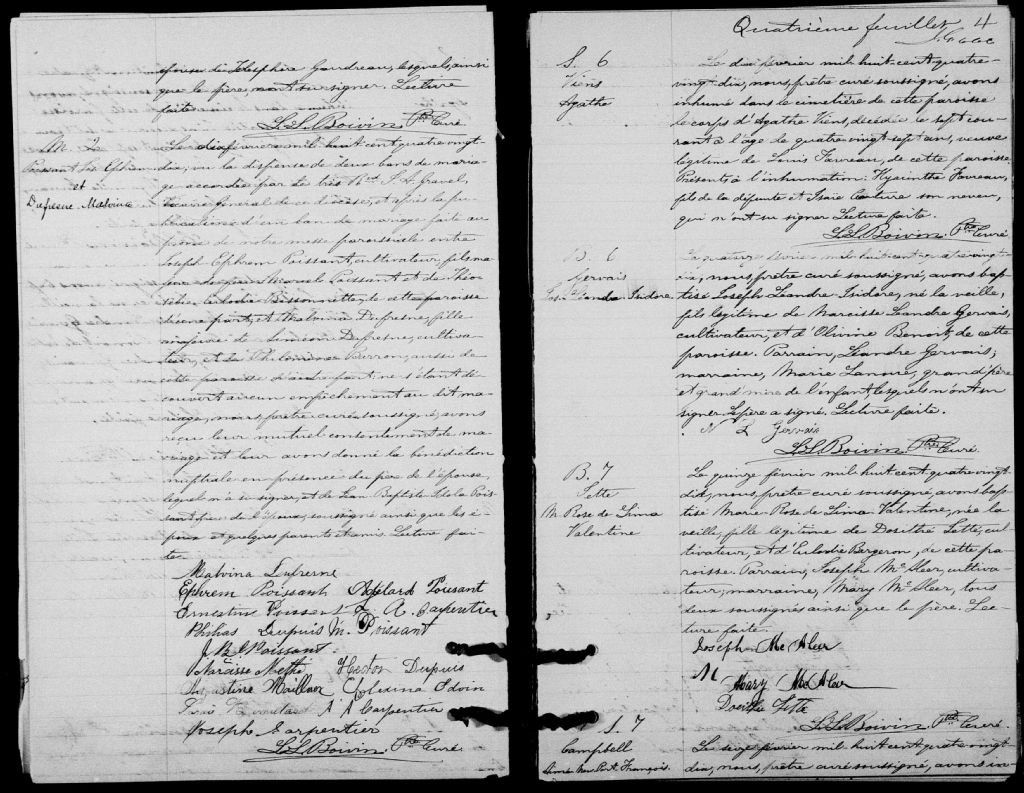 épouse de Télesphore Gaudreau, lesquels, ainsi
que le père, n'ont su signer. Lecture
faite.
L. S. Boivin, Ptre Curé
M. 2
Poissant Jos. Ephrem
et
Dufresne Malvina
Le dix février mil huit cent quatre vingt-
dix, vu la dispense de deux bans de maria-
ge accordée par le très Rd. J. A. Gravel,
Vicaire Général de ce diocèse, et après la pu-
blication d'un ban de mariage faite au
prône de notre messe paroissiale entre
Joseph Ephrem Poissant, cultivateur, fils ma-
jeur de Poissant et de
Bissonnette, de cette paroisse
d'une part, et Malvina Dufresne, fille
majeure de Siméon Dufresne, cultiva-
teur, et de Philomène aussi de
cette paroisse d'autre part; ne s'étant dé-
couvert aucun empêchement au dit ma-
riage, nous, prêtre curé soussigné, avons
reçu leur mutuel consentement de ma-
riage et leur avons donné la bénédiction
nuptiale en présence du père de l'épouse,
lequel n'a su signer, et de Jean Baptiste Pois-
sant, de l'époux, soussigné ainsi que les é-
poux et quelques parents et amis. Lecture fai-
te.
Malvina Dufresne
Ephrem Poissant Adélard Poissant
Ernestine Poissant L. A. Carpentier
Philias Dupuis M. Poissant
J B Poissant
Narcisse Hector Dupuis
Mailloux
A A Carpentier
Joseph Carpentier
L. S. Boivin, Ptre Curé
Quatrième feuillet 4
S. 6
Viens
Agathe
Le dix février mil huit cent quatre-
vingt-dix, nous, prêtre curé soussigné, avons
inhumé dans le cimetière de cette paroisse
le corps d'Agathe Viens, décédée le sept cou-
rant à l'âge de quatre vingt sept ans, veuve
légitime de Louis Favreau, de cette paroisse.
Présents à l'inhumation: Hyacinthe Favreau,
fils de la défunte et Isaïe Couture son neveu,
qui n'ont su signer. Lecture faite.
L. S. Boivin, Ptre Curé
B. 6
Gervais
Jos. Léandre Isidore
Le quatorze février mil huit cent quatre vingt-
dix, nous, prêtre curé soussigné, avons bap-
tisé Joseph Léandre Isidore, né la veille,
fils légitime de Narcisse Léandre Gervais,
cultivateur, et d'Olivine Benoit, de cette
paroisse. Parrain, Léandre Gervais;
marraine, Marie Lanoue, grand'père
et grand'mère de l'enfant, lesquels n'ont su
signer. Le père a signé. Lecture faite.
N L Gervais
L. S. Boivin, Ptre Curé
B. 7
Jetté
M. Rose de Lima
Valentine
Le quinze février mil huit cent quatre vingt
dix, nous, prêtre curé soussigné, avons bap-
tisé Marie Rose de Lima Valentine, née la
veille, fille légitime de Dosithé Jetté, cul-
tivateur, et d'Eulodie Bergeron, de cette pa-
roisse. Parrain, Joseph Mc Aleer, cultiva-
teur; marraine, Mary Mc Aleer, tous
deux soussignés ainsi que le père. Lec-
ture faite.
Joseph Mc Aleer
M
Mary Mc Aleer
Dosithé Jetté
L. S. Boivin, Ptre Curé
S. 7
Campbell
François
Le seize février mil huit cent quatre vingt
dix, nous, prêtre curé soussigné, avons in-